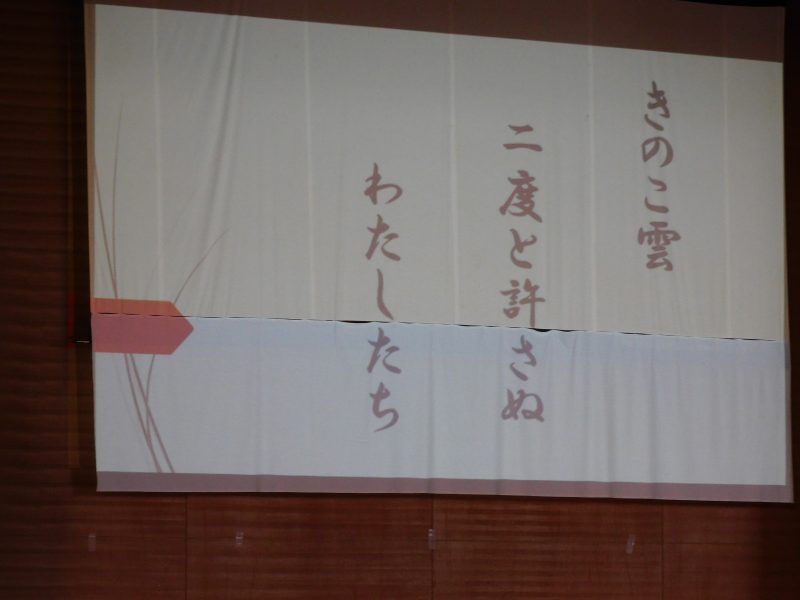 きのこ雲
二度と許さぬ
わたしたち